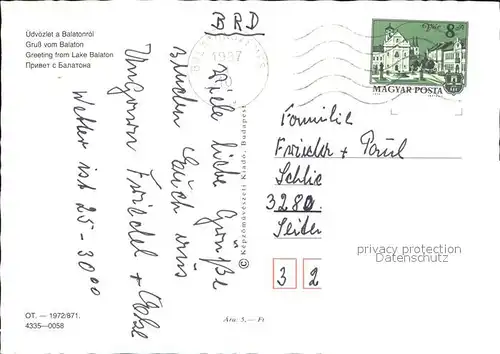 Üdvözlet a Balatonról
Gruß vom Balaton
Greeting from Lake Balaton
Привет с Балатона
BRD
1987
8 Ft
MAGYAR POSTA
Viele liebe Grüße
senden Euch aus
Ungarn Friedel +
Wetter ist 25 - 30 °C
© Képzőművészeti Kiadó, Budapest
Familie
Friedel + Paul
Schlie
3280
privacy protection
Datenschutz
3 2
OT. — 1972/871.
4335—0058
Ára: 5,— Ft